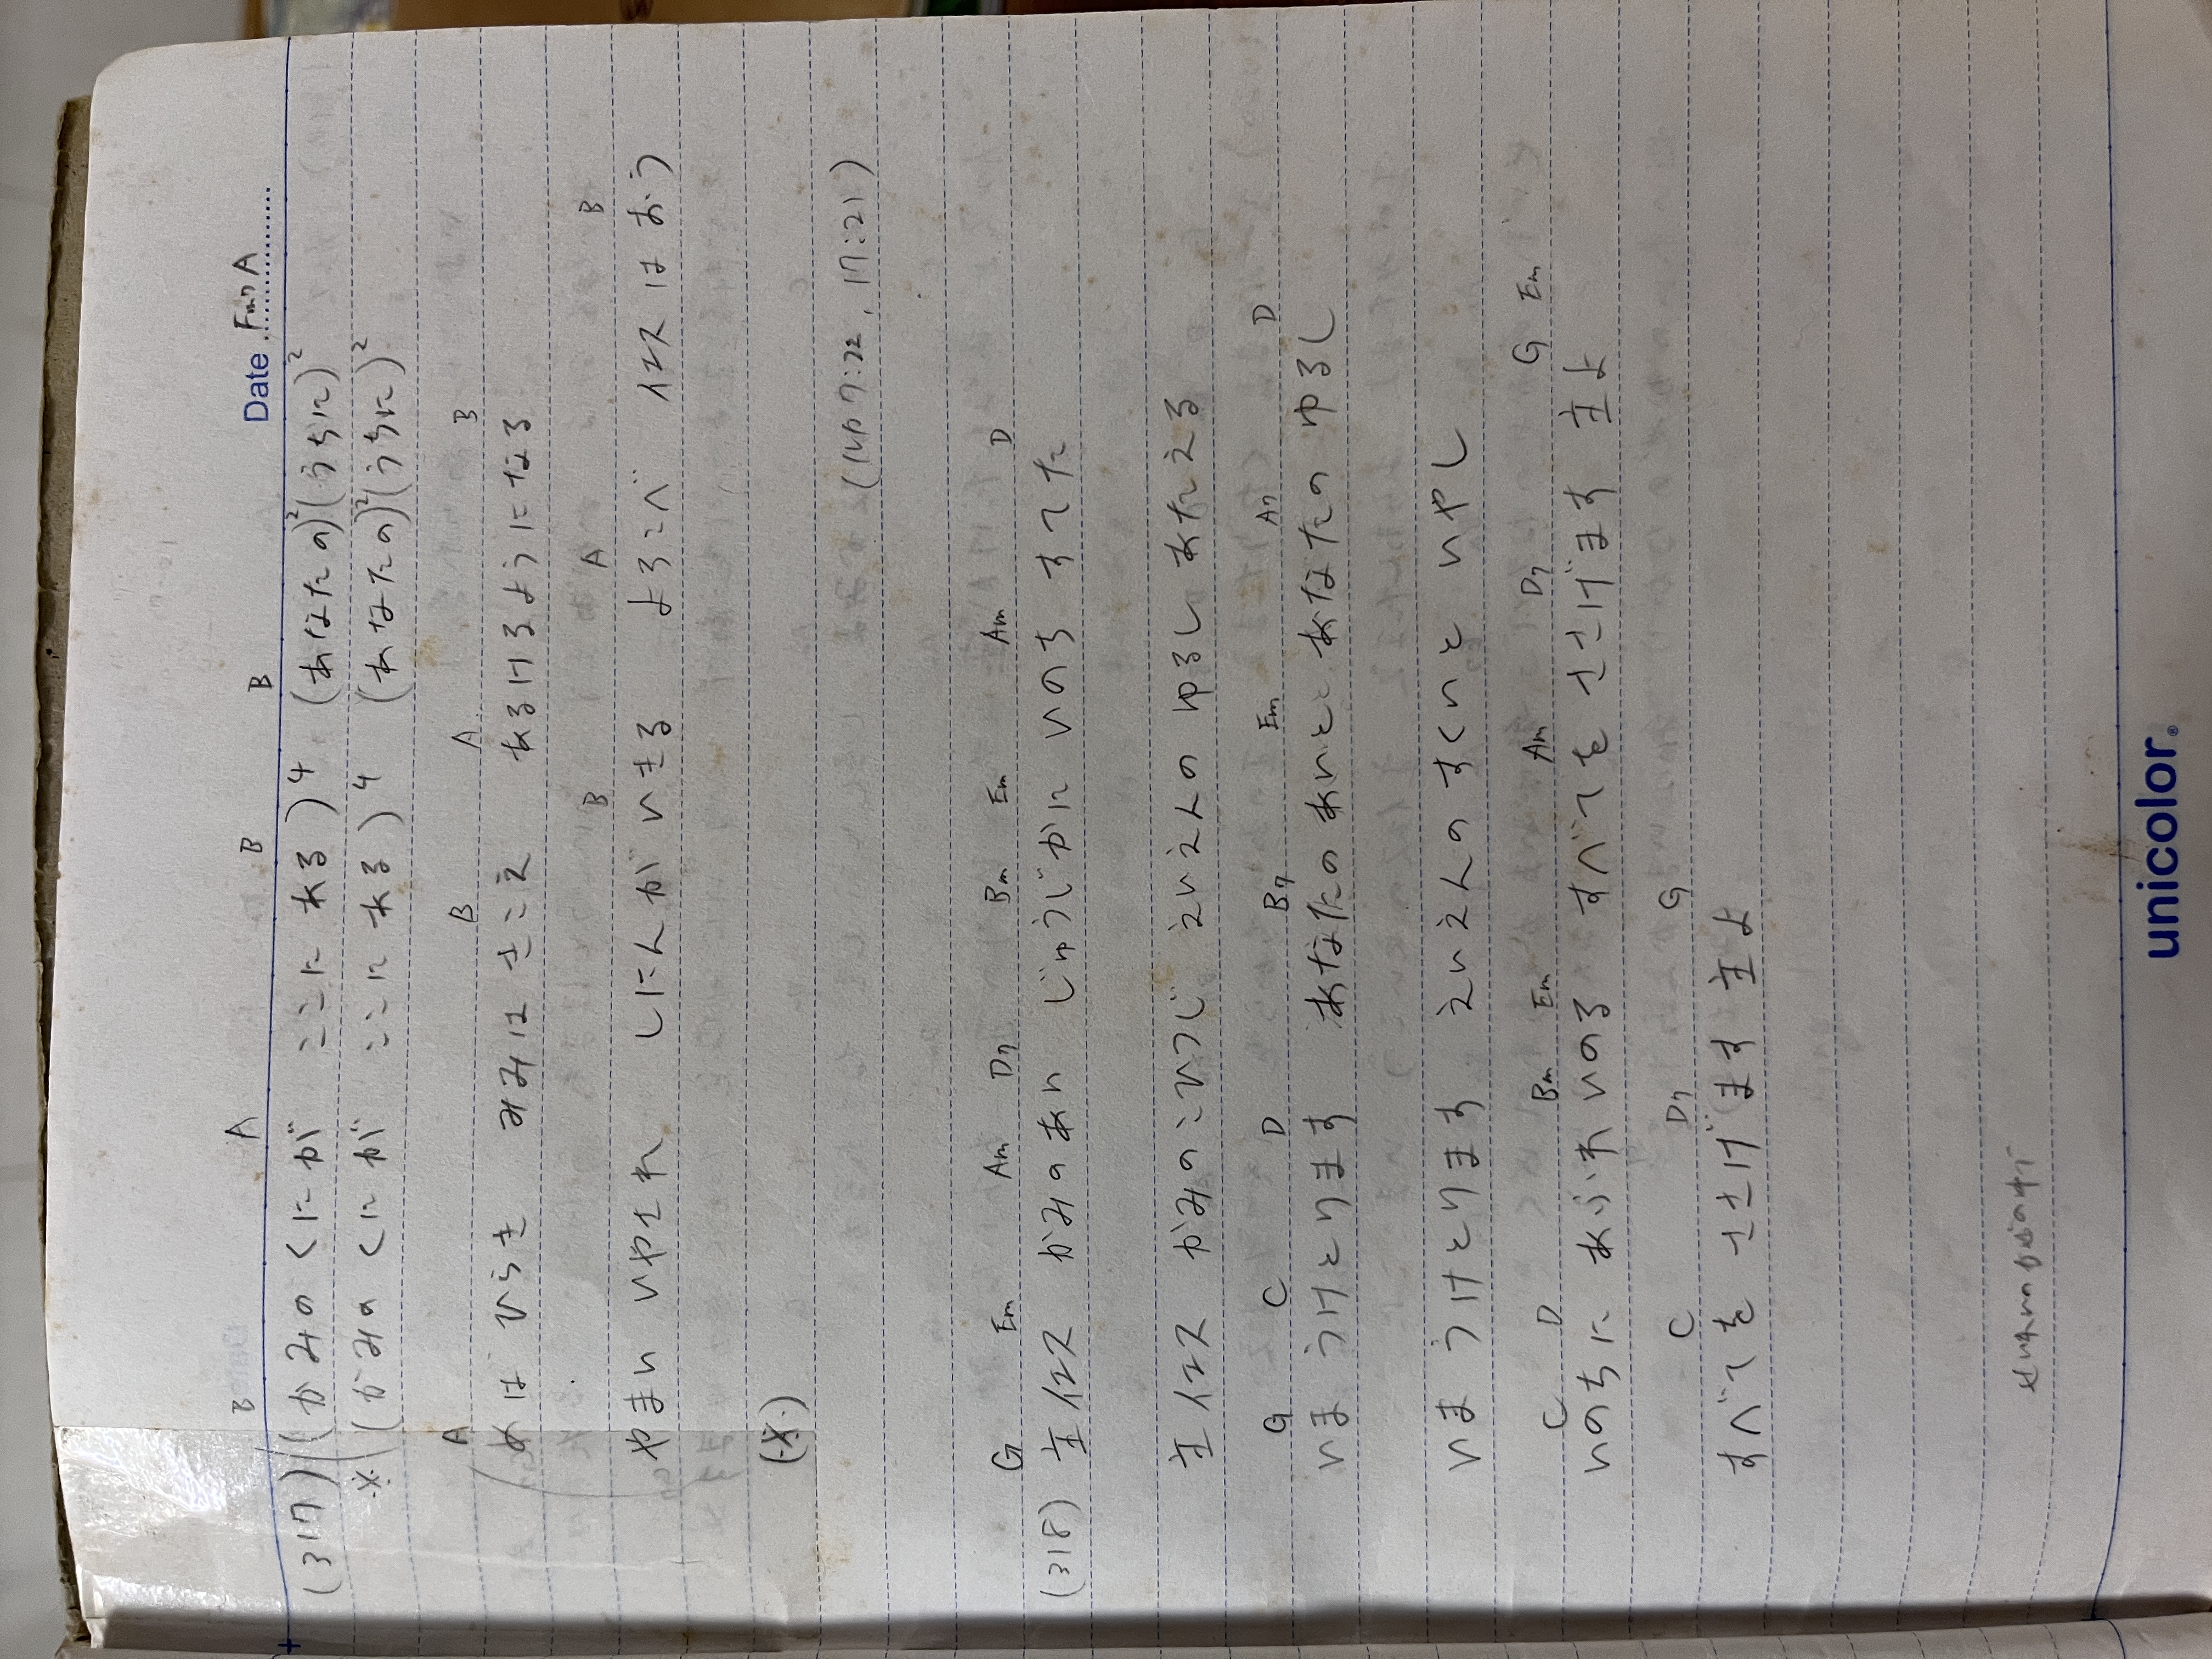 Date Fm7 A
B A B B
(317) (かみの くにが ここに ある)4 (あなたの)2 (うちに)2
※ (かみの くにが ここに ある)4 (あなたの)2 (うちに)2
A B A B
めは ひらき みみは きこえ あるけるようになる
B A B
やまい いやされ しにんが いきる よろこべ イエスは おう)
(※)
(ルカ 7:22, 17:21)
G Em Am D7 Bm Em Am D
(318) 主イエス かみのあい じゅうじかに いのち すてた
主イエス かみの こひつじ えいえんの ゆるし あたえる
G C D B7 Em A7 D
いま うけとります あなたの あいと あなたの ゆるし
いま うけとります えいえんの すくいと いやし
C D Bm Em Am D7 G Em
いのちに あふれ いのる すべてを ささげます 主よ
C D7 G
すべてを ささげます 主よ
unicolor®